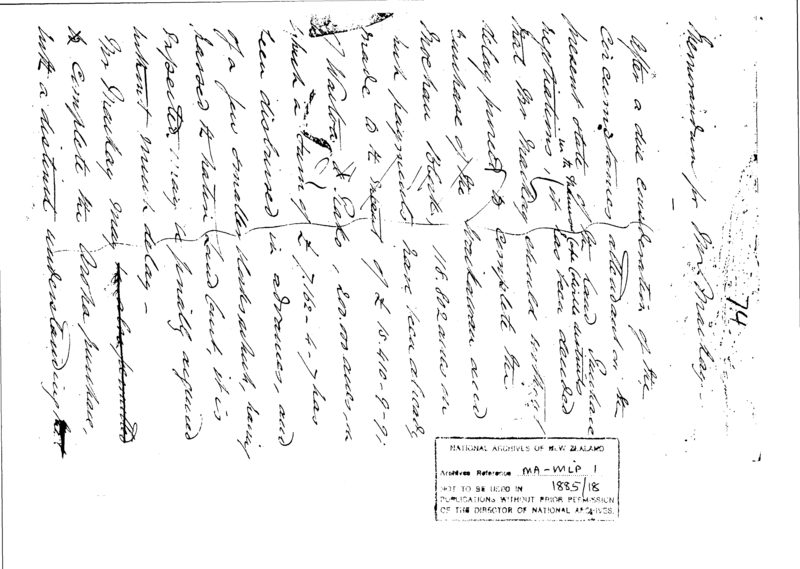 74
Memorandum for Mr Mackay –
After a due consideration of the
circumstances attendant on the
present state of the Land Purchase
negotiations, in the
it has been decided
that Mr Mackay should without
delay proceed to complete the
purchase of the and
Block, 118.802 acres in
which payments have been already
made to the extent of £ 15.410-9-9;
& 200.000 acres, in
which a sum of £ 7,162-4-7 has
been disbursed in advances, and
of a few smaller blocks which, having
passed the Native Land Court, it is
expected may be finally acquired
without much delay –
Mr Mackay may
to complete the purchase,
with a distinct understanding
NATIONAL ARCHIVES OF NEW ZEALAND
Archives Reference MA-MLP 1
1885/18
NOT TO BE USED IN
PUBLICATIONS WITHOUT PRIOR PERMISSION
OF THE DIRECTOR OF NATIONAL ARCHIVES.